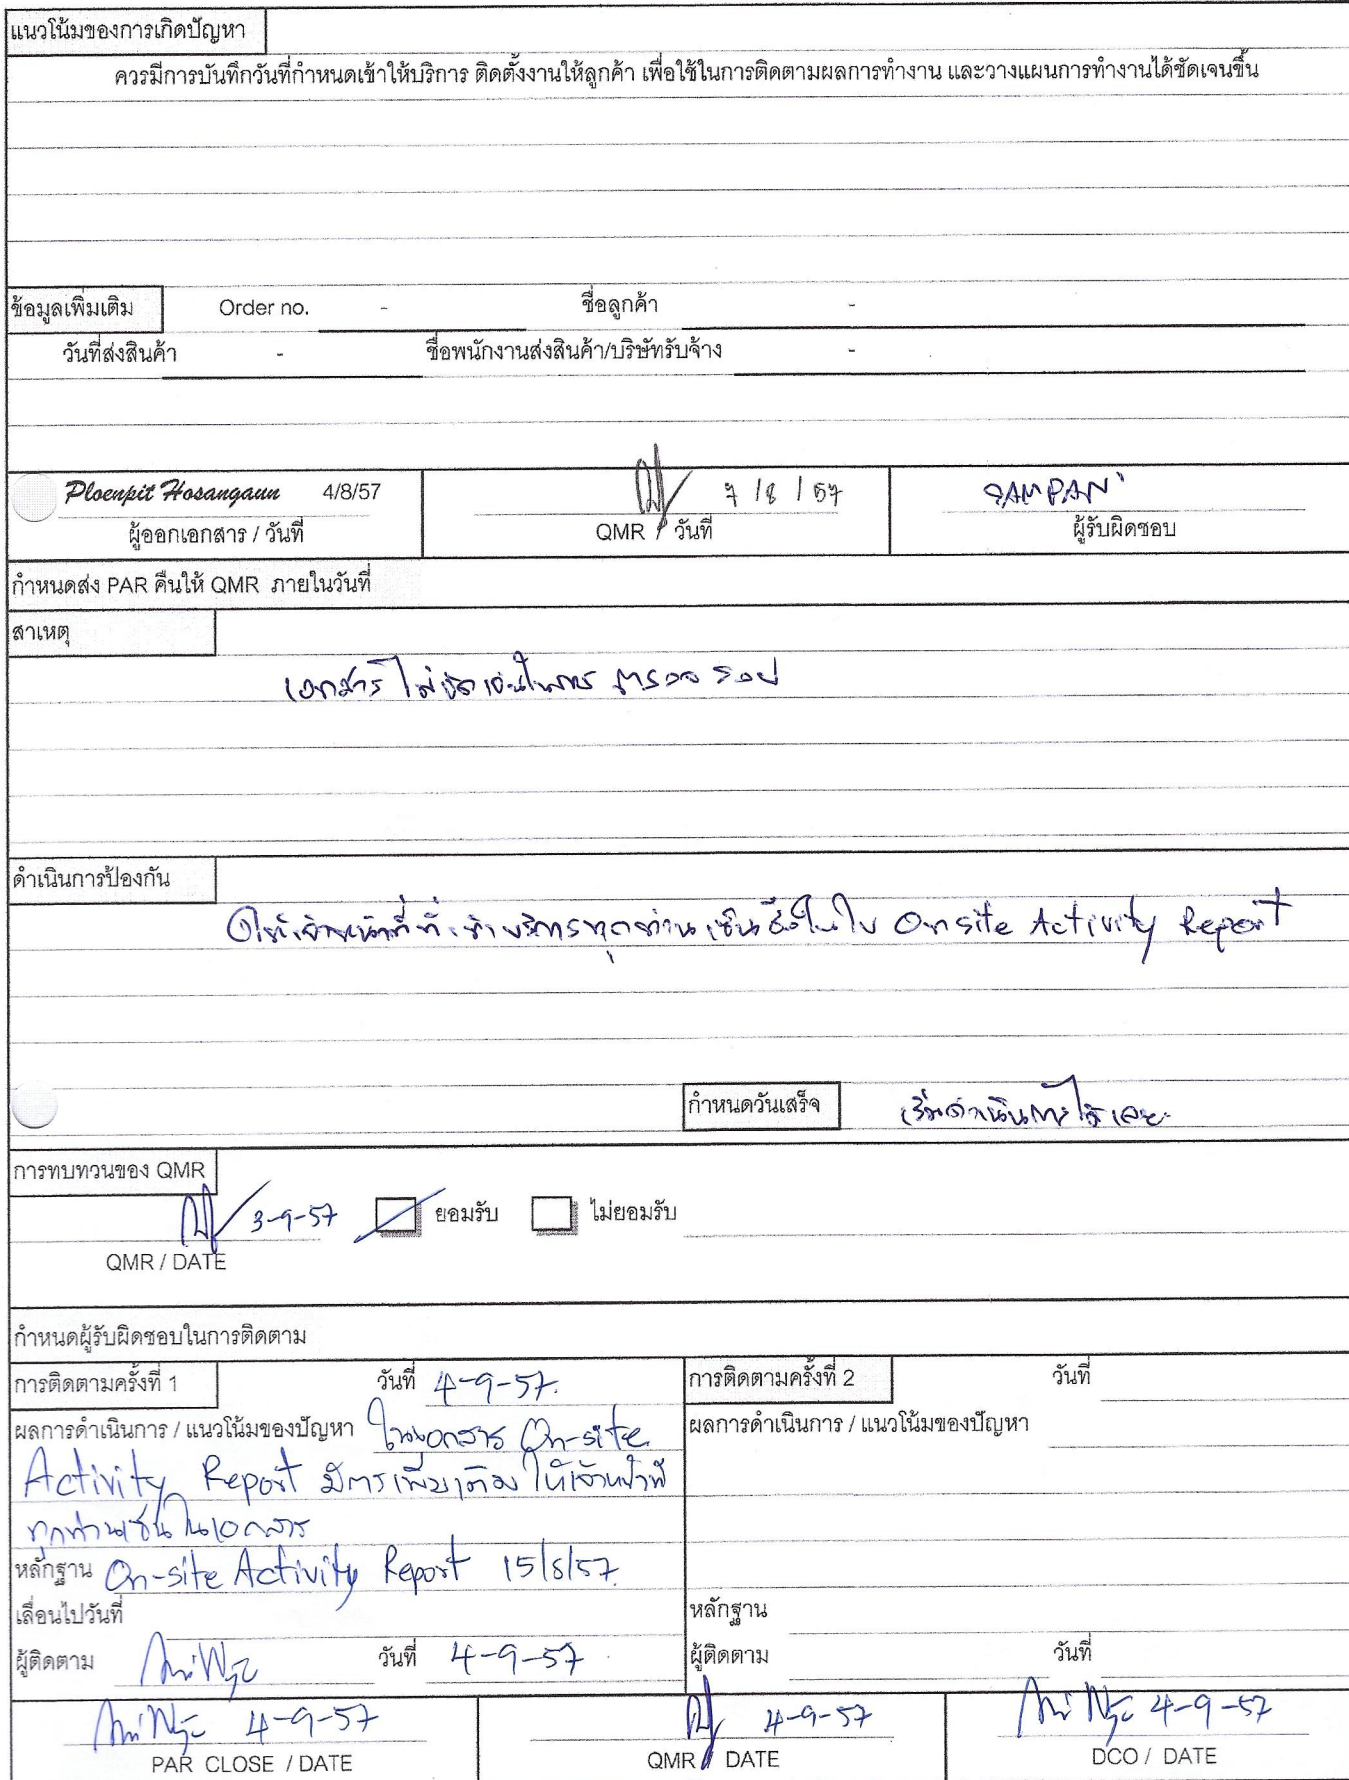 แนวโน้มของการเกิดปัญหา
ควรมีการบันทึกวันที่กำหนดเข้าให้บริการ ติดตั้งงานให้ลูกค้า เพื่อใช้ในการติดตามผลการทำงาน และวางแผนการทำงานได้ชัดเจนขึ้น
ข้อมูลเพิ่มเติม Order no. - ชื่อลูกค้า -
วันที่ส่งสินค้า - ชื่อพนักงานส่งสินค้า/บริษัทรับจ้าง -
Ploenpit Hosangaun 4/8/57 7/8/57 SAMPAN
ผู้ออกเอกสาร / วันที่ QMR / วันที่ ผู้รับผิดชอบ
กำหนดส่ง PAR คืนให้ QMR ภายในวันที่
สาเหตุ
เอกสารไม่ชัดเจนในการตรวจสอบ
ดำเนินการป้องกัน
ให้เจ้าหน้าที่ที่เข้าบริการทุกท่านเซ็นชื่อในใบ Onsite Activity Report
กำหนดวันเสร็จ เริ่มดำเนินการได้เลย
การทบทวนของ QMR
3-9-57 ยอมรับ ไม่ยอมรับ
QMR / DATE
กำหนดผู้รับผิดชอบในการติดตาม
การติดตามครั้งที่ 1 วันที่ 4-9-57. การติดตามครั้งที่ 2 วันที่
ผลการดำเนินการ / แนวโน้มของปัญหา ในเอกสาร On-site ผลการดำเนินการ / แนวโน้มของปัญหา
Activity Report มีการเพิ่มเติม ให้เจ้าหน้าที่
ทุกท่านเซ็นในเอกสาร
หลักฐาน On-site Activity Report 15/8/57
เลื่อนไปวันที่ หลักฐาน
ผู้ติดตาม วันที่ 4-9-57 ผู้ติดตาม วันที่
4-9-57 4-9-57 4-9-57
PAR CLOSE / DATE QMR / DATE DCO / DATE